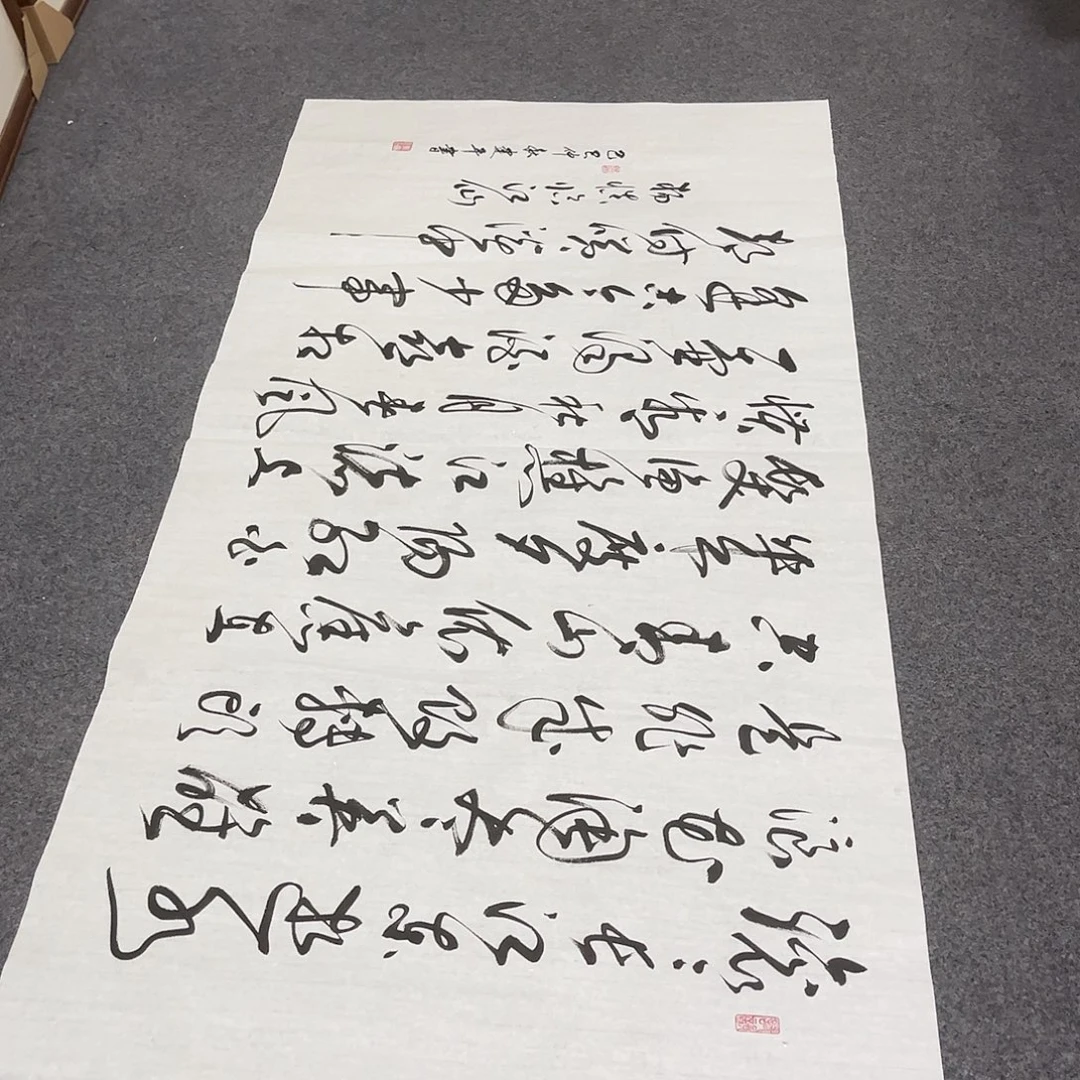 滚滚长江东逝水
浪花淘尽英雄
是非成败转头
空青山依旧在
几度夕阳红白
发渔樵江渚上
惯看秋月春风
一壶浊酒喜相
逢古今多少事
都付笑谈中
杨慎临江仙
乙巳仲秋建平书